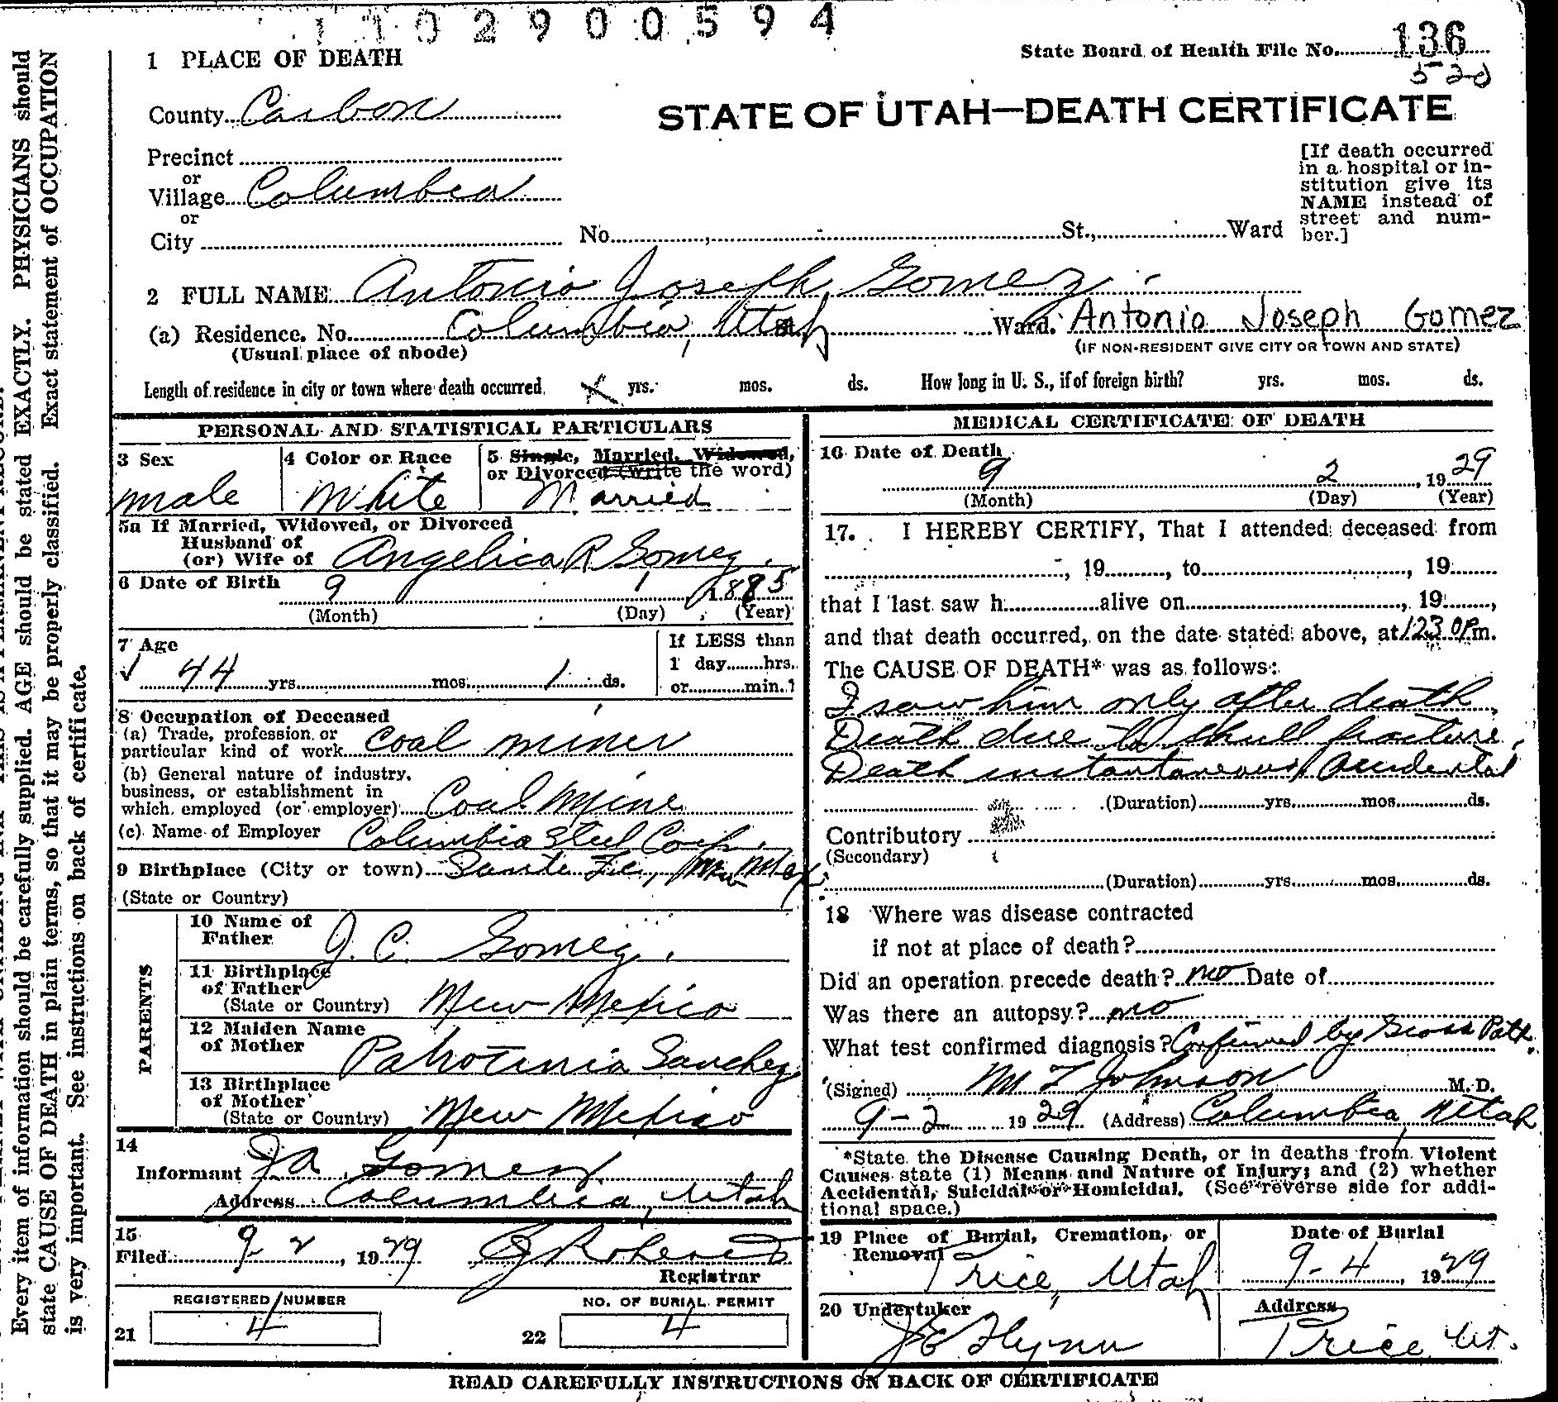 1102900594
State Board of Health File No. 136
520
1 PLACE OF DEATH
County Carbon
STATE OF UTAH—DEATH CERTIFICATE
Precinct
or
Village Columbia
or
City No. St., Ward
[If death occurred
in a hospital or in-
stitution give its
NAME instead of
street and num-
ber.]
2 FULL NAME Antonio Joseph Gomez
(a) Residence. No. Columbia, Utah St. Ward. Antonio Joseph Gomez
(Usual place of abode) (IF NON-RESIDENT GIVE CITY OR TOWN AND STATE)
Length of residence in city or town where death occurred yrs. mos. ds. How long in U. S., if of foreign birth? yrs. mos. ds.
PERSONAL AND STATISTICAL PARTICULARS
3 Sex
male
4 Color or Race
White
5 Single, Married, Widowed,
or Divorced (write the word)
Married
5a If Married, Widowed, or Divorced
Husband of
(or) Wife of Angelica R Gomez
6 Date of Birth
9 1 1885
(Month) (Day) (Year)
7 Age
44 yrs. mos. 1 ds.
If LESS than
1 day hrs.
or min.?
8 Occupation of Deceased
(a) Trade, profession or
particular kind of work coal miner
(b) General nature of industry,
business, or establishment in
which employed (or employer) Coal Mine
(c) Name of Employer Columbia Steel Corp.
9 Birthplace (City or town) Sante Fe, New Mex
(State or Country)
PARENTS
10 Name of
Father J. C. Gomez
11 Birthplace
of Father
(State or Country) New Mexico
12 Maiden Name
of Mother Sanchez
13 Birthplace
of Mother
(State or Country) New Mexico
14
Informant J A Gomez
Address Columbia, Utah
15
Filed 9-2, 1929
Registrar
REGISTERED NUMBER
21 4
NO. OF BURIAL PERMIT
22 4
MEDICAL CERTIFICATE OF DEATH
16 Date of Death
9 2, 1929
(Month) (Day) (Year)
17. I HEREBY CERTIFY, That I attended deceased from
, 19, to , 19
that I last saw h alive on , 19,
and that death occurred, on the date stated above, at 1230 P.m.
The CAUSE OF DEATH* was as follows:
I saw him only after death.
Death due to skull fracture.
Death instantaneous Accidental
(Duration) yrs. mos. ds.
Contributory
(Secondary)
(Duration) yrs. mos. ds.
18 Where was disease contracted
if not at place of death?
Did an operation precede death? no Date of
Was there an autopsy? no
What test confirmed diagnosis? Confirmed by Gross Path.
(Signed) M T Johnson M. D.
9-2 1929 (Address) Columbia, Utah
*State the Disease Causing Death, or in deaths from Violent
Causes state (1) Means and Nature of Injury; and (2) whether
Accidental, Suicidal or Homicidal. (See reverse side for addi-
tional space.)
19 Place of Burial, Cremation, or
Removal
Price, Utah
Date of Burial
9-4, 1929
20 Undertaker
J E Flynn
Address
Price Ut.
READ CAREFULLY INSTRUCTIONS ON BACK OF CERTIFICATE
Every item of information should be carefully supplied. AGE should be stated EXACTLY. PHYSICIANS should
state CAUSE OF DEATH in plain terms, so that it may be properly classified. Exact statement of OCCUPATION
is very important. See instructions on back of certificate.